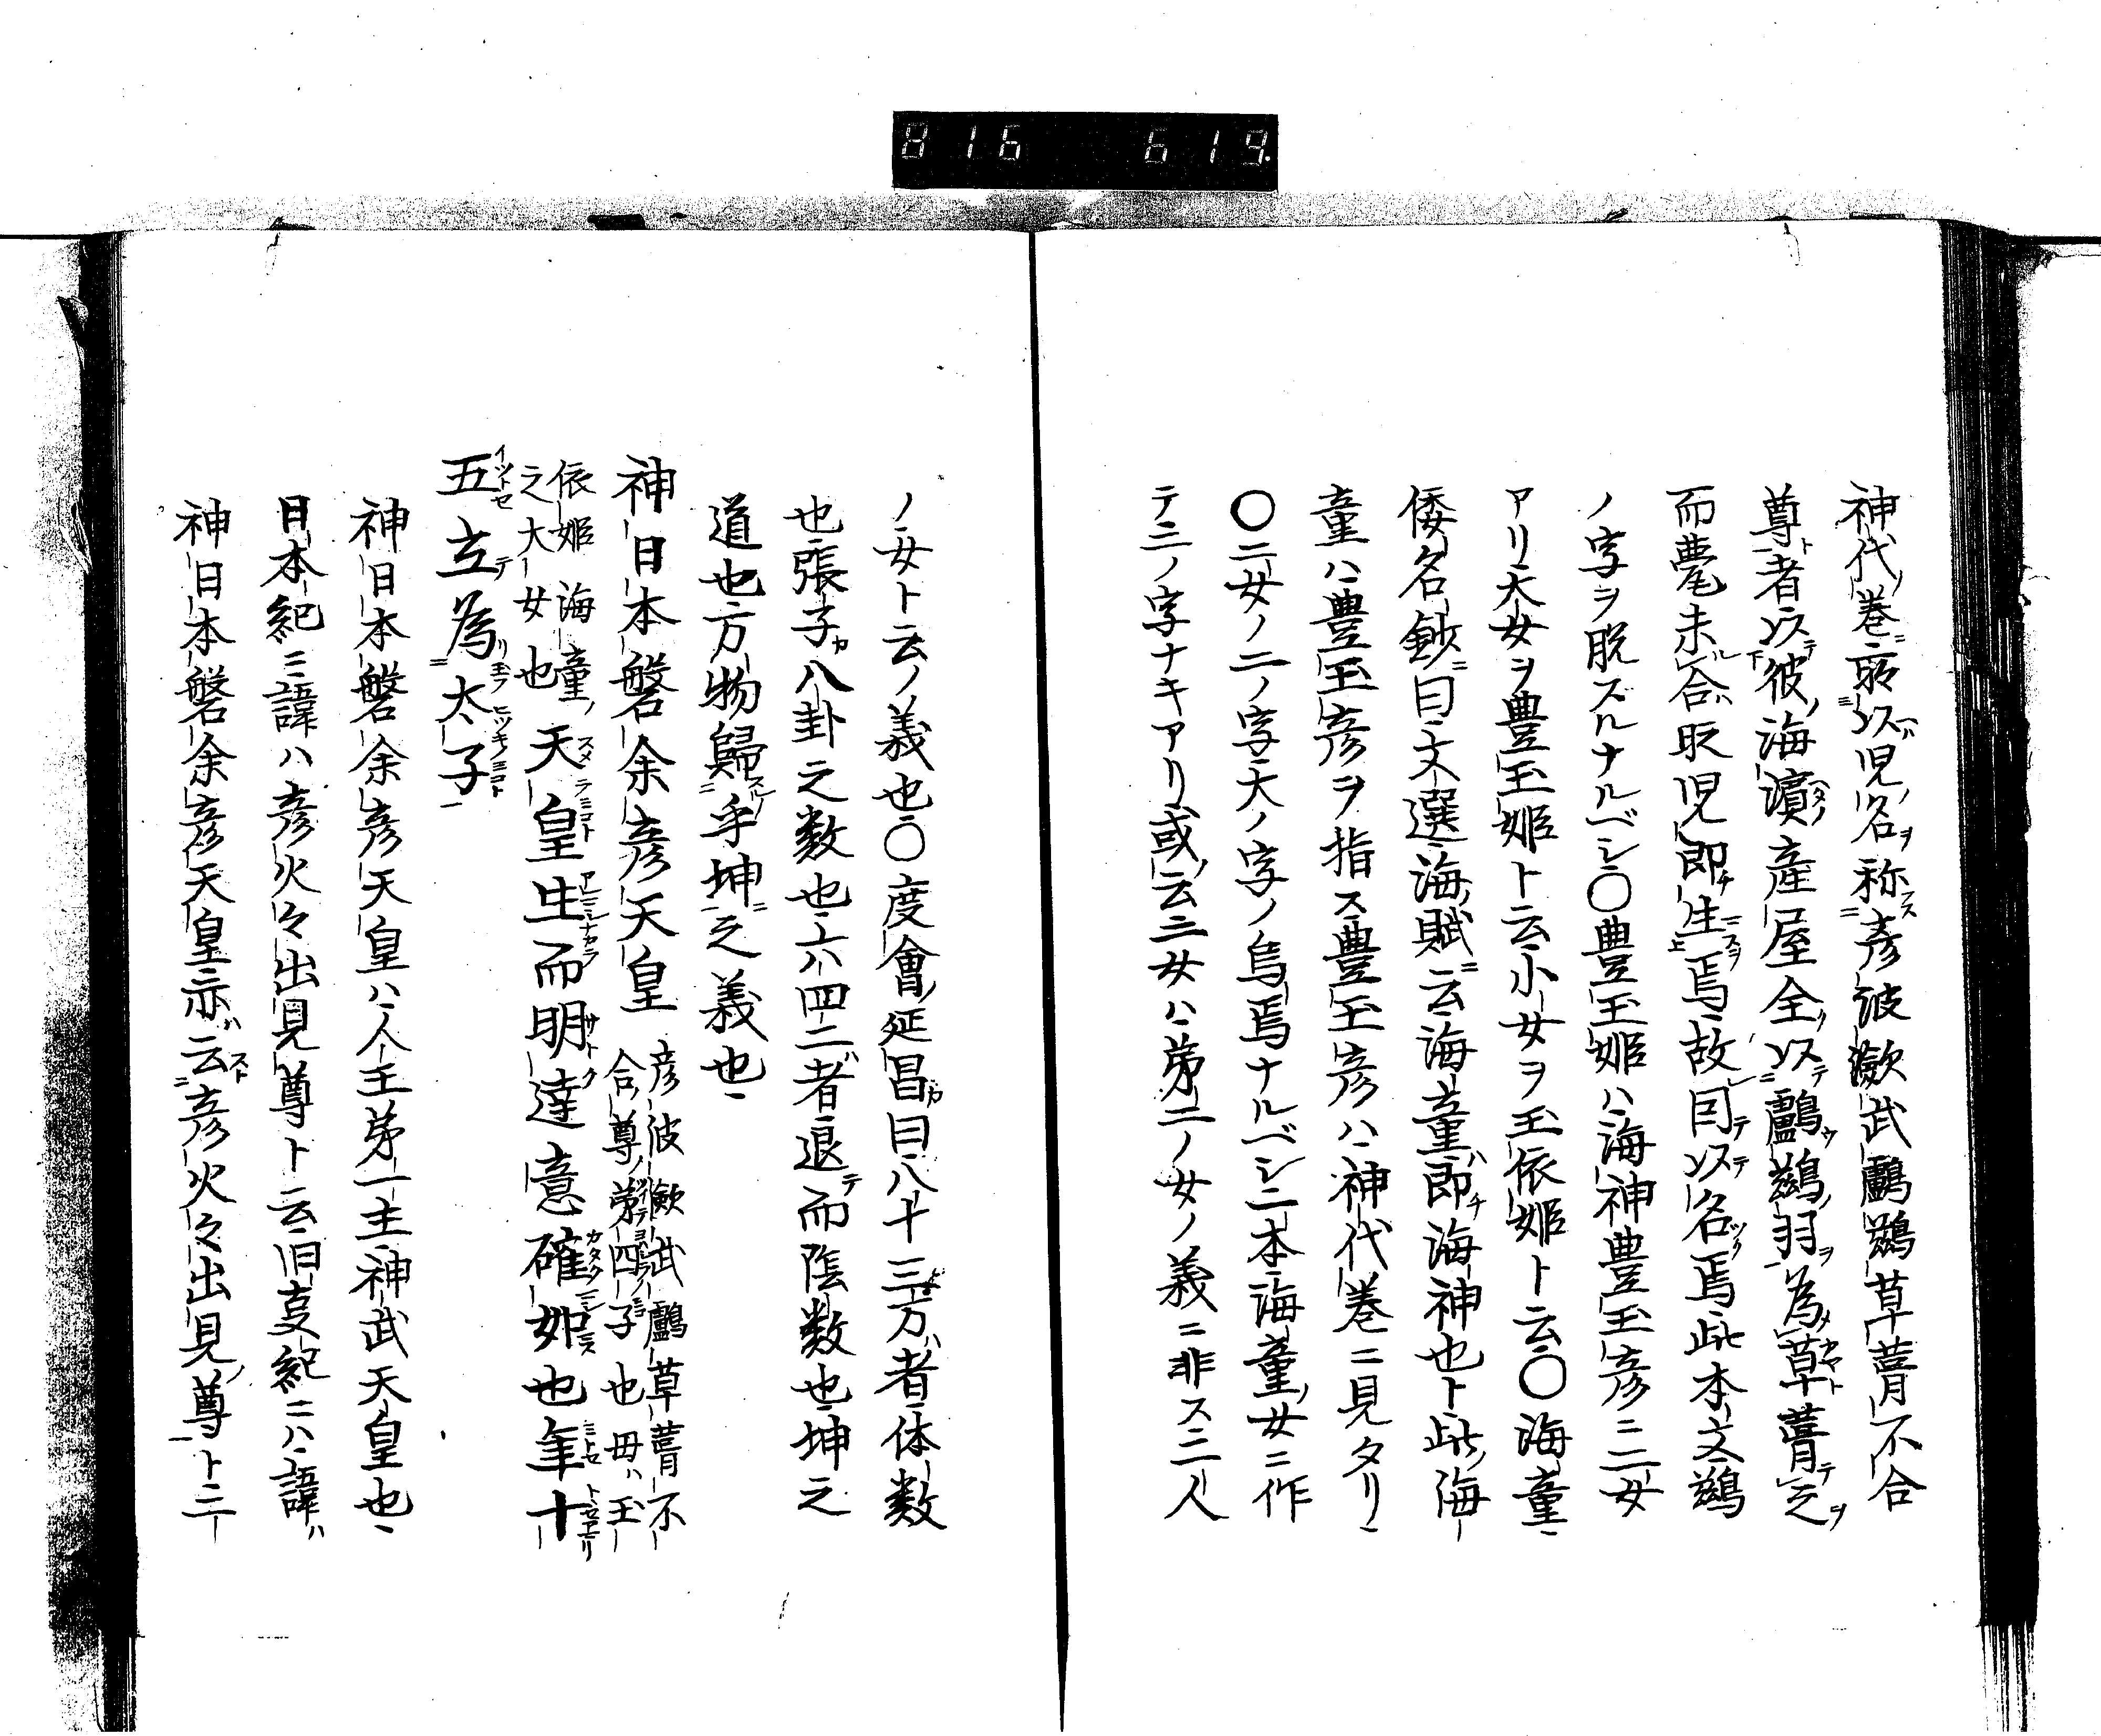 816 619.
神代巻ニ所以児名称彦波瀲武鸕鷀草葺不合
尊者以彼海濱産屋全以鸕鷀羽為草葺之
而甍未合時児即生焉故因以名焉此本文鷀
ノ字ヲ脱スルナルベシ〇豊玉姫ハ海神豊玉彦ニ二女
アリ大女ヲ豊玉姫ト云小女ヲ玉依姫ト云〇海童
倭名鈔曰文選海賦云海童即海神也ト此海
童ハ豊玉彦ヲ指ス豊玉彦ハ神代巻ニ見タリ
〇二女ノ二ノ字大ノ字ノ烏焉ナルベシ一本海童女ニ作
テ二ノ字ナキアリ或云二女ハ第二ノ女ノ義ニ非ス二人
ノ女ト云ノ義也〇度會延昌曰八十三万者体数
也張子八卦之数也六四二者退而陰数也坤之
道也万物歸乎坤之義也
神日本磐余彦天皇 彦波瀲武鸕草葺不
合尊ノ第四子也毋ハ玉
依姫海童
之大女也 天皇生而明達意確如也年十
五立為太子
神日本磐余彦天皇ハ人王第一主神武天皇也
日本紀ニ諱ハ彦火々出見尊ト云旧事紀ニハ諱ハ
神日本磐余彦天皇亦云彦火々出見尊ト二